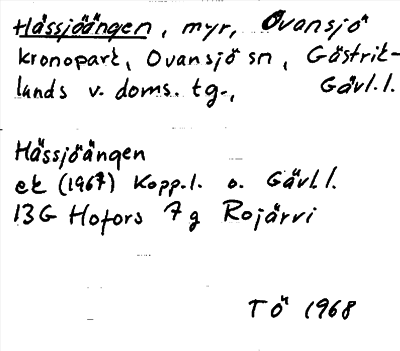 Hässjöängen, myr, Ovansjö
kronopark, Ovansjö sn, Gästrik-
lands v. doms. tg., Gävl.l.
Hässjöängen
ek (1967) Kopp.l. o. Gävl.l.
13G Hofors 7g Rojärvi
TÖ 1968